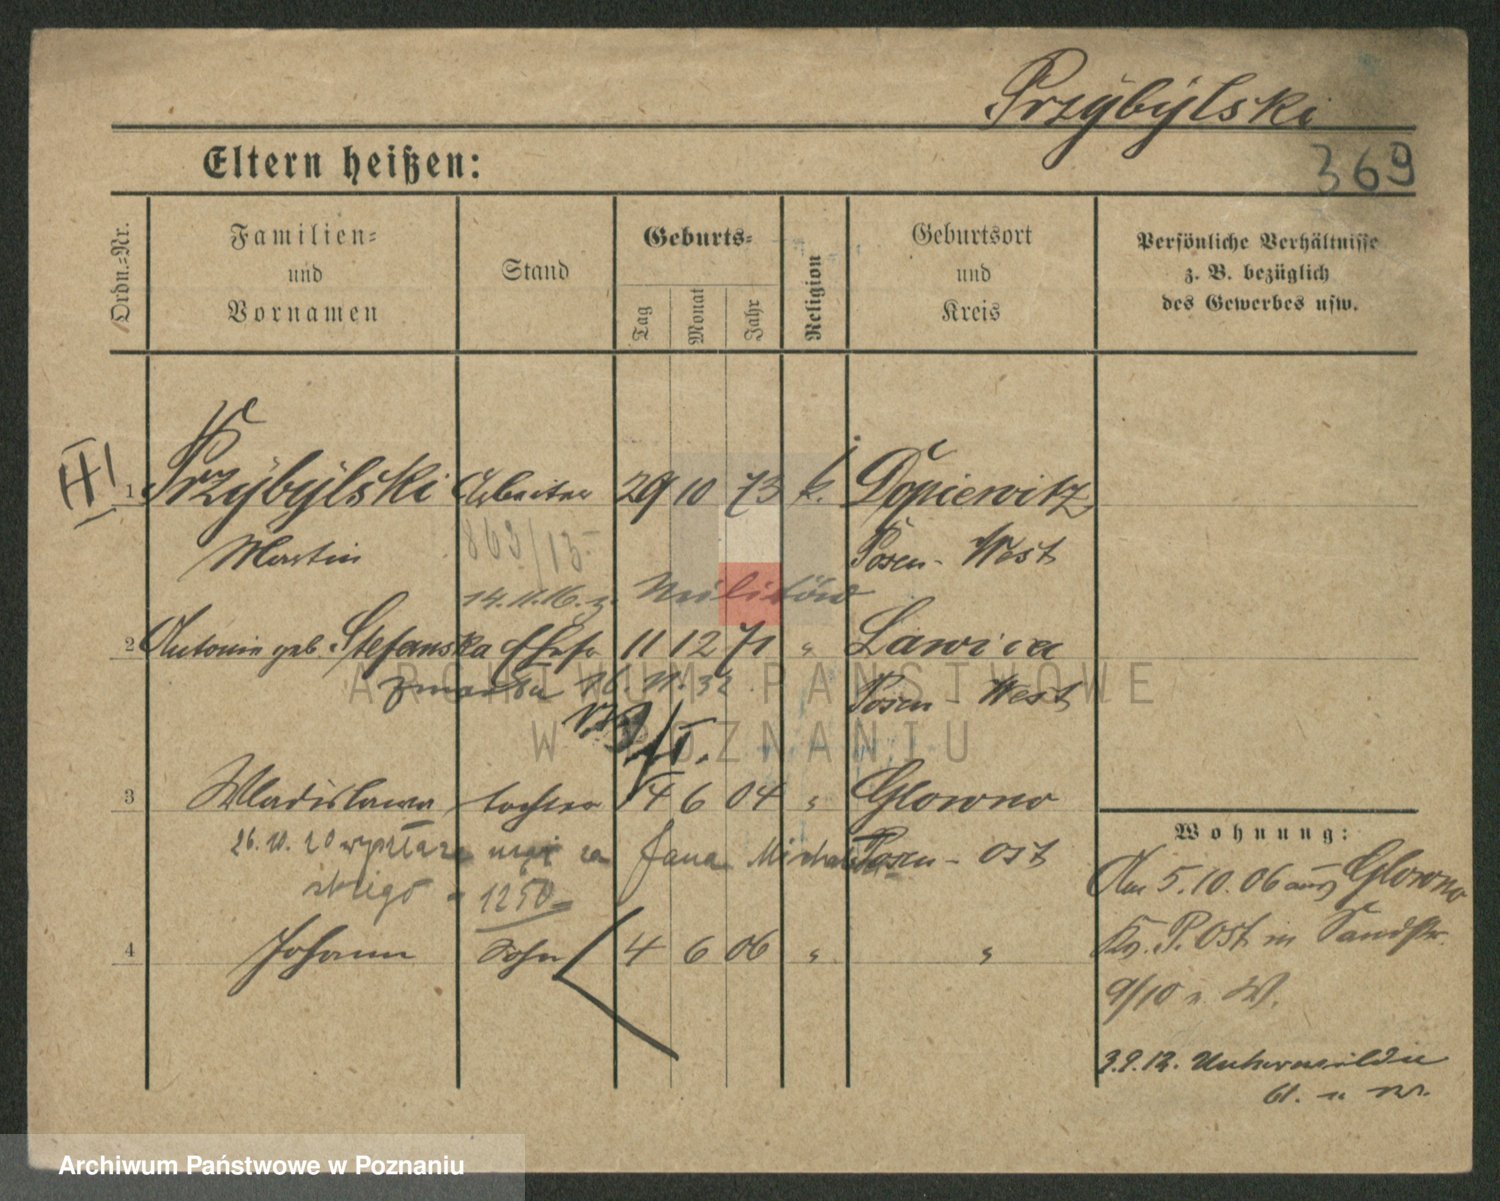 Przybylski
369
Eltern heißen:
Ordn.-Nr.
Familien- und Vornamen
Stand
Geburts-
Tag
Monat
Jahr
Religion
Geburtsort und Kreis
Persönliche Verhältnisse
z. B. bezüglich
des Gewerbes usw.
III
1 Przybylski Arbeiter 29 10 73 k. Dopiewitz
Martin Posen-West
863/13
14.11.16.
2 Antonie geb. Stefanska Ehefr 11 12 71 " Lawica
zmarła 16.11.32 Posen-West
3 Wladislawa tochter 14 6 04 " Glowno
26.10.20 Jana Posen-Ost
1250
4 Johann Sohn 4 6 06 " "
Wohnung:
Am 5.10.06 aus Glowno
Kr. P. Ost in Sandstr.
9/10 n. W.
3.9.12. Unterwilda
61.
ARCHIWUM PAŃSTWOWE
W POZNANIU
Archiwum Państwowe w Poznaniu